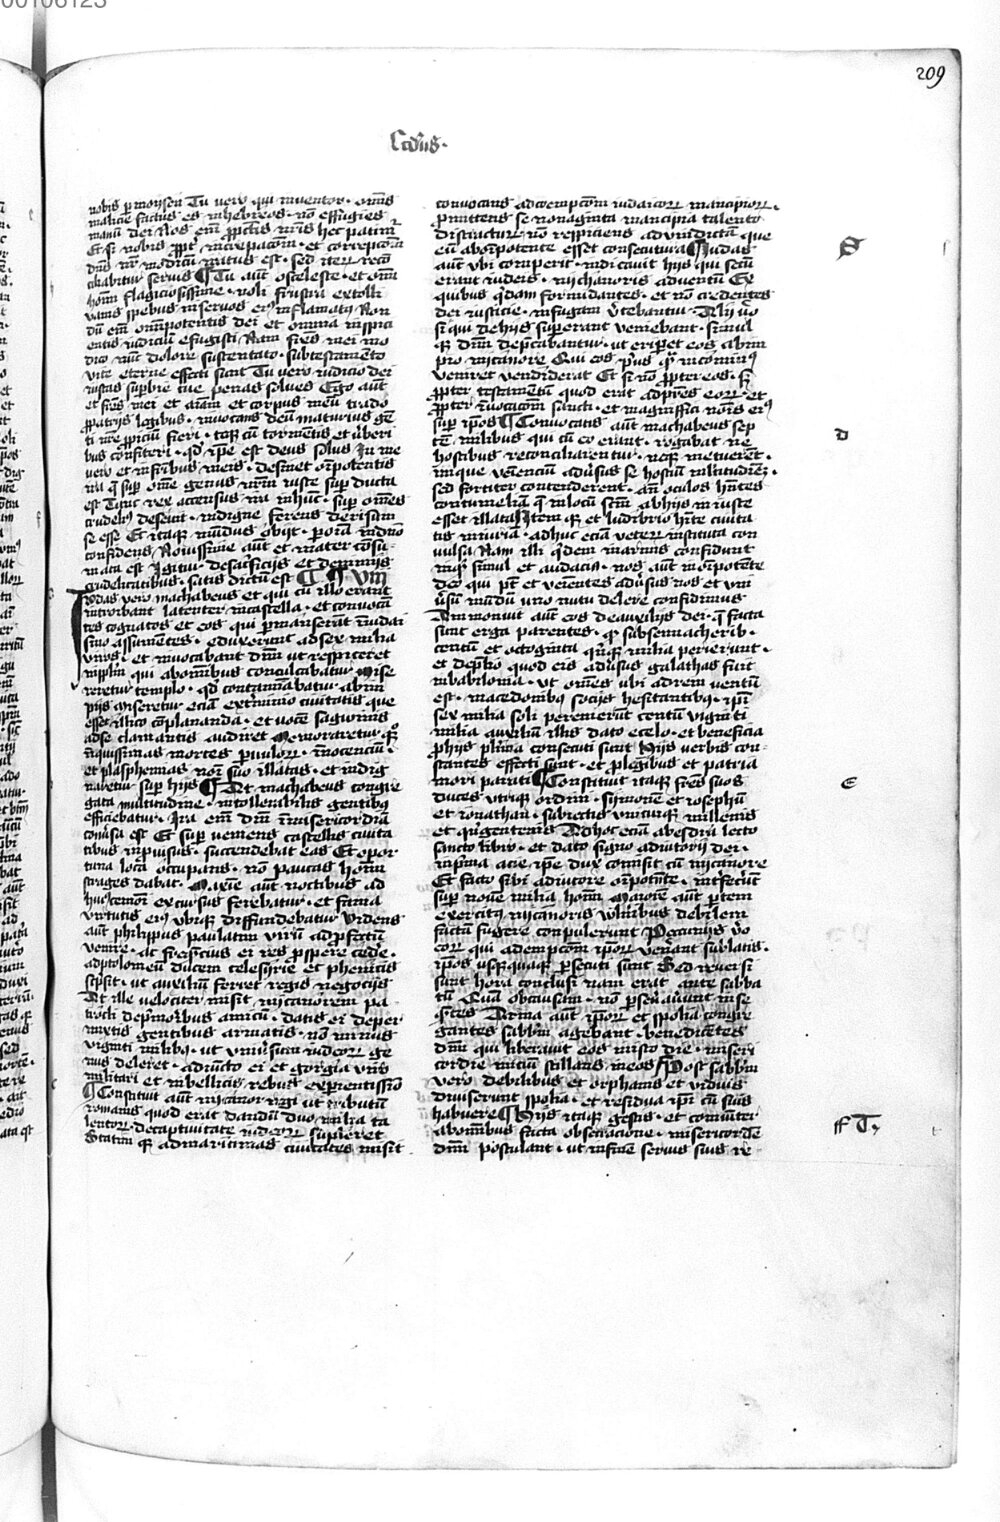 209
Scd̄us·
nobis p̄ moysen Tu vero qui inventor · om̄is
malicie factus es in hebreos · nō effugies
manū dei Nos em̄ p̄ p̄ctis nr̄is hec patim̄
Et si nobis ꝓpt̄ increpacōem · et correpcōem
dn̄s nr̄ modicū iratus est · sed iterū recō
ciliabitur servis ¶ Tu aut̄ o sceleste · et om̄iū
hoīm flagiciosissime · noli frustra extolli
vanis spebus in servos eiꝰ inflamatꝰ Non
dū em̄ om̄ipotentis dei et omnia inspici
entis iudiciū efugisti Nam fr̄es mei mo
dico nūc dolore sustentato · sub testamento
vite eterne effecti sunt Tu vero iudicio dei
iustas supbie tue penas solves Ego aut̄
et fr̄es mei et aīam et corpus meū trado
ꝓ patrijs legibus · invocans deū maturius gē
ti nr̄e ꝓpiciū fieri · teqꝫ cū tormentis et v̄beri
bus confiteri · qd̄ ip̄e est deus solus In me
vero et in fr̄ibus meis · desinet om̄ipotentis
ira q̄ sup om̄e genus nr̄m iuste sup ducta
est Tunc rex accensus ira in hūc · sup om̄es
crudeliꝰ deseiuit · indigne ferens derisum
se esse Et itaqꝫ mūdus obijt · p̄ om̄ia in dn̄o
confidens Novissime aut̄ et mater cōsu
mata est Igitur de sacficijs et de nimijs
crudelitatibus · satis dictū est ¶ ¶ VIII
Iudas vero machabeus et qui cū illo erant
introibant latenter in castella · et convocā
tes cognatos et eos qui p̄manserūt in iudai
smo assumentes · eduxerunt ad sex milia
viros · et invocabant dn̄m ut respiceret
in pplm̄ qui ab om̄ibus conculcabatur Mise
reretur templo · qd̄ contaminabatur ab im
pijs Miseretur eciam ext̄minio civitatis que
esset illico cōplananda · et vocē sagwinis
ad se clamantis audiret Memoraretur qꝫ
iniquissimas mortes p̄vulorꝝ · innocenciū ·
et blasphemias noī suo illatas · et indig
naretur sup hijs ¶ At machabeus congre
gata multitudine · intollerabilis gentibꝰ
efficiebatur · Ira em̄ dn̄i in misericordiā
cōuersa est Et sup veniens castellis civita
tibus inp̄uisus · succendebat eas Et opor
tuna loca occupans · nō paucas hoīm
strages dabat · Maxie aut̄ noctibus ad
huiꝰcemōi excursus ferebatur · et fama
virtutis eiꝰ ubiqꝫ diffundebatur Videns
aut̄ philippus paulatim virū ad ꝓfectū
venire · ac frequencius ei res ꝓspere cede ·
ad ptolomeū ducem celesirie et phenicis
scpsit · ut auxiliū ferret regis negocijs
At ille velociter misit nicanorem pa
trocli de p̄moribus amicū · datis ei de per
mixtis gentibus armatis · nō minus
viginti milibꝰ · ut vniu̇sum iudeorꝝ ge
nus deleret · adiūcto ei et gorgia viro
militari et in bellicis rebus experientissimo
¶ Constituit aut̄ nicanor regi ut tributū
romanis quod erat dandū duo milia ta
lentorꝝ · de captivitate iudeorꝝ supleret
Statim qꝫ ad maritimas civitates misit
convocans ad coempcōem iudaicorꝝ mancipiorꝝ ·
p̄mittens se nonaginta mancipia talento
distracturū nō respiciens ad vindictā que
eū ab om̄ipotente esset consecutura ¶ Iudas
aut̄ ubi comperit · indicavit hijs qui secū
erant iudeis · nichanoris adventū Ex
quibus q̄dam formidantes · et nō credentes
dei iusticie · in fugam v̄tebantur · Alij v̄o
si qui de hijs sup̄erant veniebant · simul
qꝫ dn̄m dep̄cabantur · ut erip̄et eos ab im
pio nicanore Qui eos p̄us qꝫ in cominꝰ
veniret vendiderat Et si nō ꝓpter eos · sꝫ
ꝓpter testamentū quod erat ad pr̄es eorꝝ · et
ꝓpter invocacōem sancti · et magnifici nōis eiꝰ
sup ip̄os ¶ Convocatis aut̄ machabeus sep
tē milibus qui cū eo erant · rogabat ne
hostibus reconciliarentur · neqꝫ metuerēt ·
inique venienciū adu̇sus se hostiū multitudinē ·
sed fortiter contenderent · añ oculos hn̄tes
contumeliā q̄ in locū scm̄ ab hijs iniuste
esset illata Item qꝫ et ludibrio hīte civita
tis iniuriā · adhuc eciā veterꝝ instituta con
vulsa Nam illi q̄dem in armis confidunt
inqꝫ simul et audacia · nos aut̄ in om̄ipotēte
deo qui pt̄ et venientes adu̇sus nos et vni
u̇sū mūdū uno nutu delere confidimus
Am monuit aut̄ eos de auxilijs dei · q̄ facta
sunt erga parentes · qꝫ sub sennacherib ·
centū et octoginta qn̄qꝫ milia perierunt ·
et de p̄lio quod eis adu̇sus galathas fuit
in babilonia · ut om̄es ubi ad rem ventū
est · macedonibꝰ socijs hesitantibꝰ · ip̄i
sex milia soli peremerūt centū viginti
milia auxiliū illis dato e celo · et beneficia
ꝓ hijs plīma consecuti sunt Hijs verbis con
stantes effecti sunt · et ꝓ legibus et patria
mori parati ¶ Constituit itaqꝫ fr̄es suos
duces utriqꝫ ordini · symonē et iosephū
et ionathan · subiectis vnicuiqꝫ millenis
et qn̄gentenis Ad hoc eciā ab esdra lecto
sancto libro · et dato signo adiutorij dei ·
in p̄ma acie ip̄e dux comisit cū nicanore
Et facto sibi adiutore om̄ipotēte · int̄fecerūt
sup novē milia hoīm Maiorē aut̄ p̄tem
exercitꝰ nicanoris vulneribus debilem
factū fugere conpulerunt Pecunijs v̄o
eorꝝ qui ad empcōem ip̄orꝝ ven̄ant sublatis ·
ip̄os usqꝫquaqꝫ p̄secuti sunt Sed reversi
sunt hora conclusi nam erat ante sabba
tū Quā ob causam · nō p̄seu̇auerunt inse
q̄ntes Arma aut̄ ip̄orꝝ et spolia congre
gantes sabbm̄ agebant · benedicētes
dn̄m qui liberavit eos in isto die · miseri
cordie iniciū stillans in eos ¶ Post sabbm̄
vero debilibus et orphanis et viduis
diviserunt spolia · et residua ip̄i cū suis
habuere ¶ Hijs itaqꝫ gestis · et comūniter
ab om̄ibus facta obsecracione · misericordē
dn̄m postulant · ut in finē servis suis re
D
E